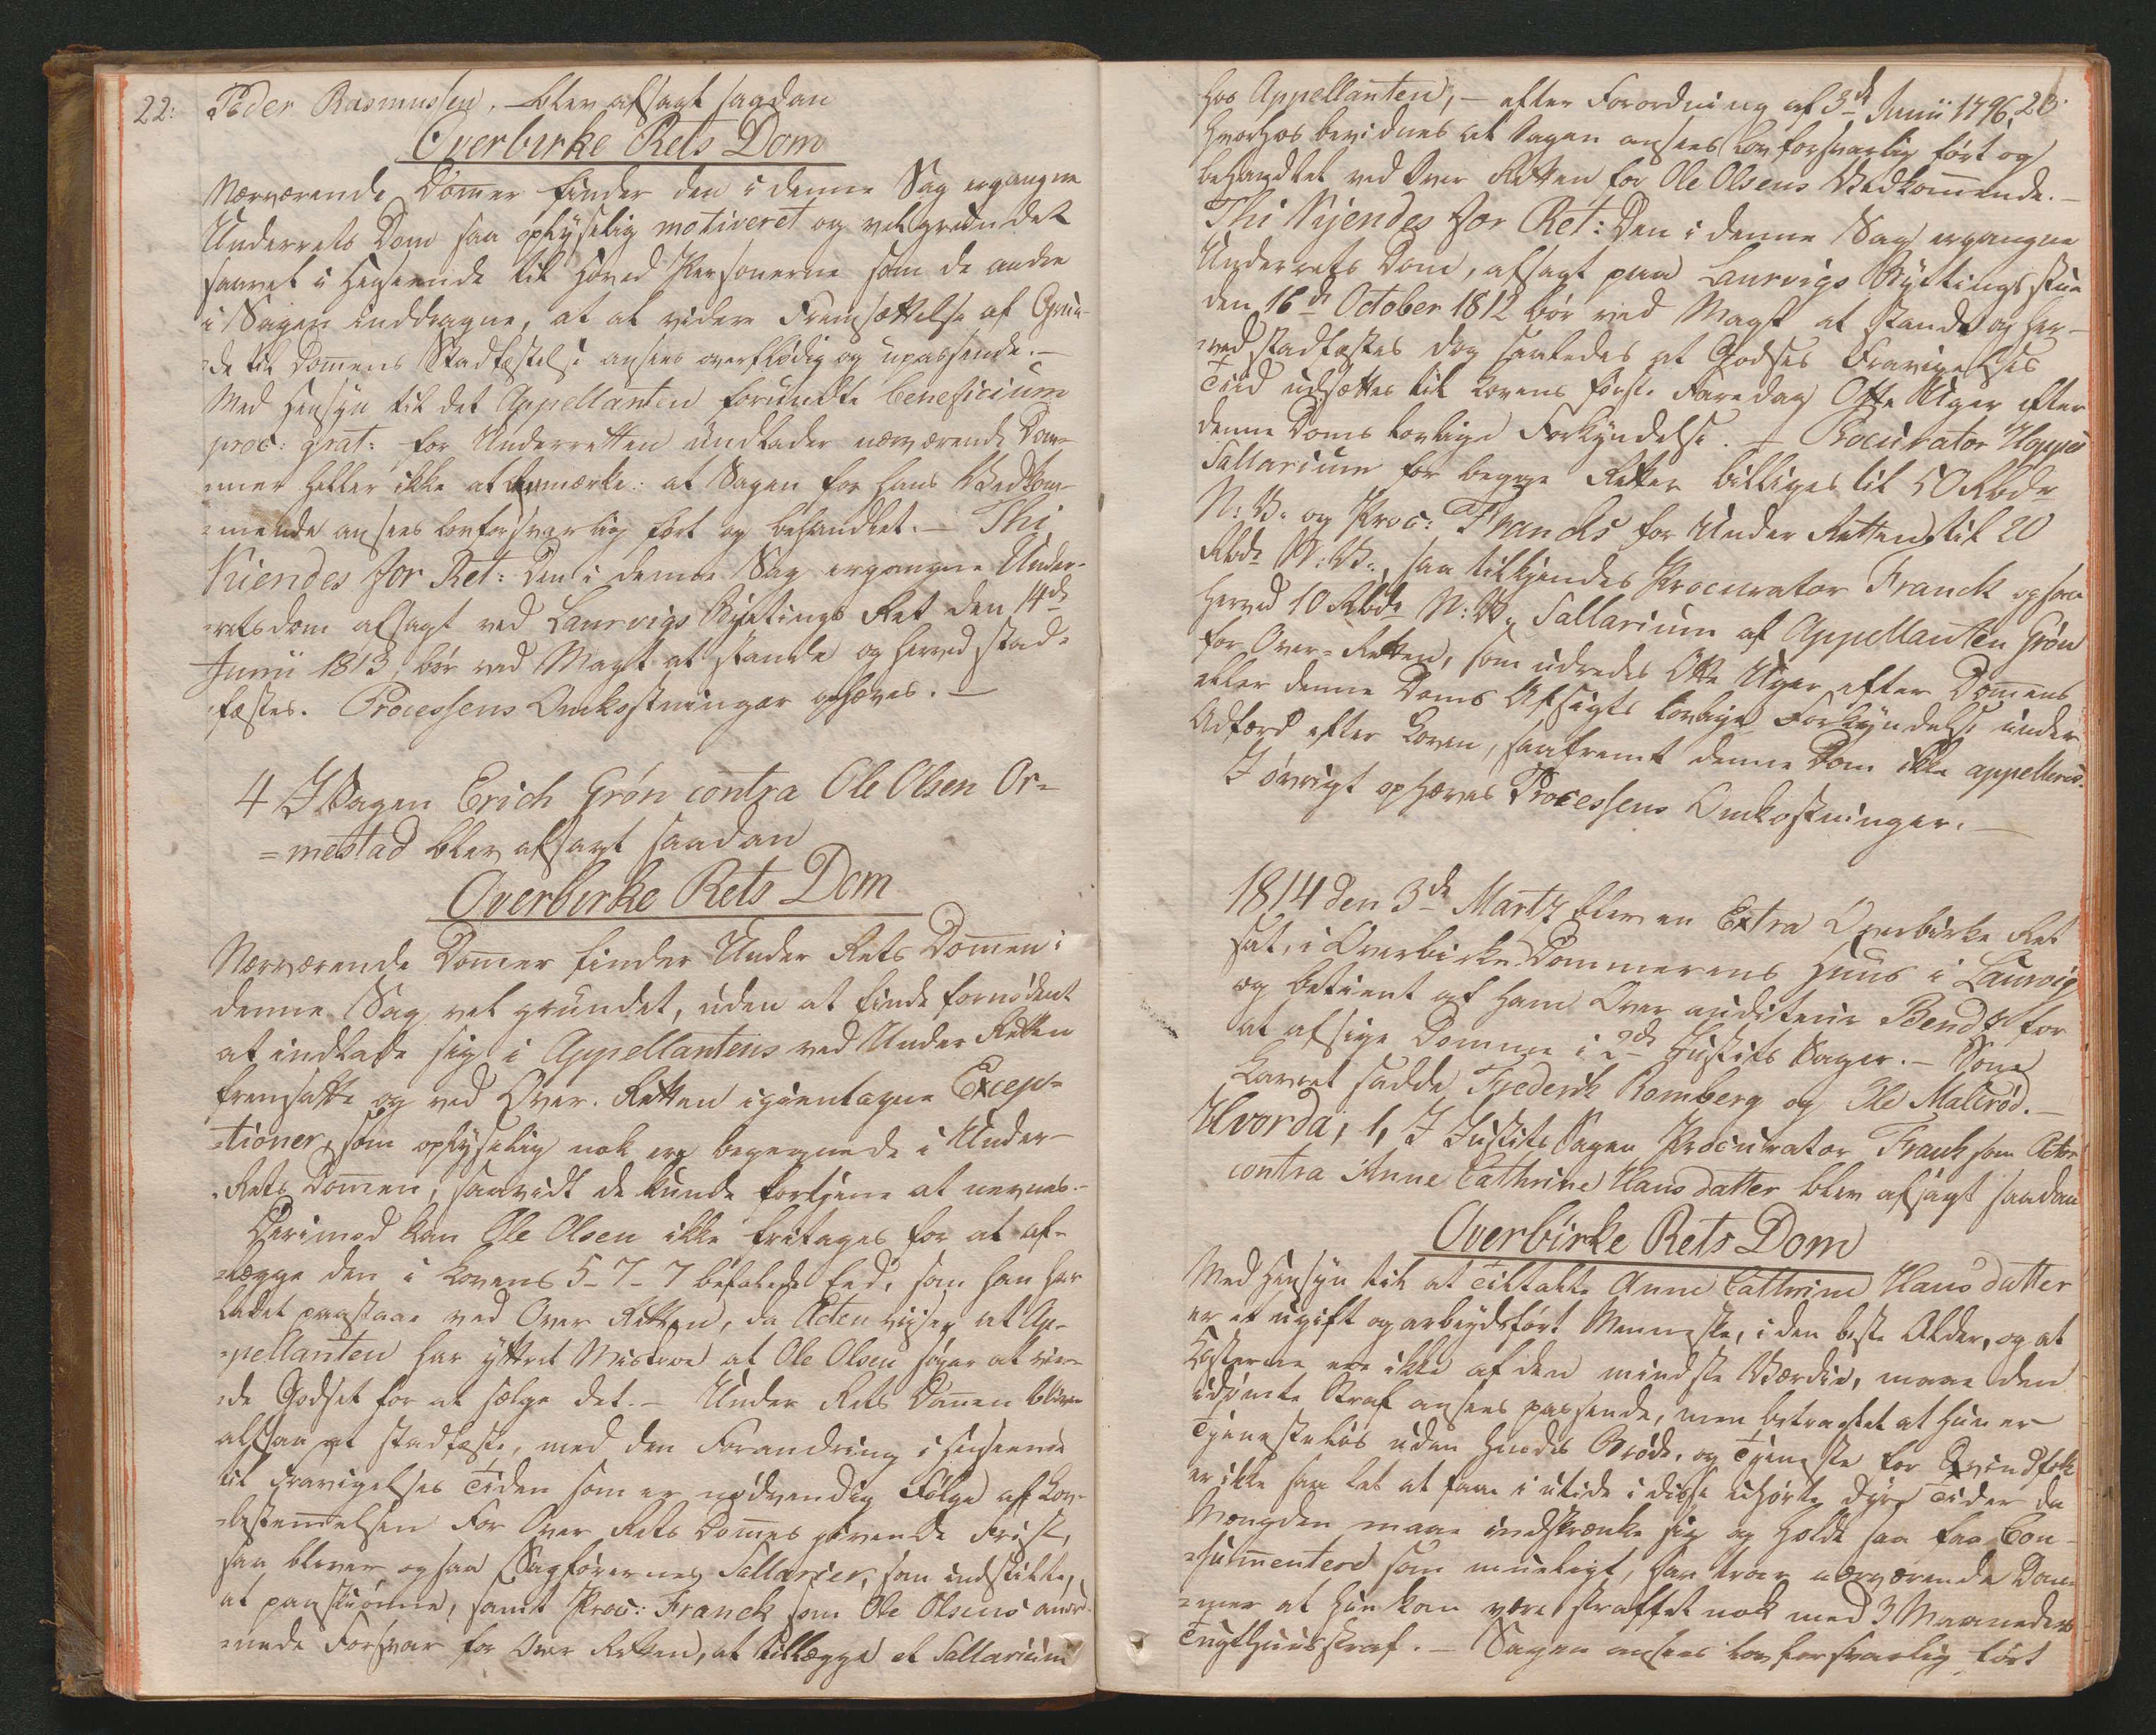 22: Peder Rasmussen, blev afsagt saadan
Overbirke Rets Dom
Nærværende Dom̅er finder den i denne Sag ergangne
Underrets Dom saa oplyselig motiveret og velgrundet
saavel i Henseende til Hoved Personerne som de andre
i Sagen inddragne, at al videre Fremsættelse af Grun-
=de til Dom̅ens Stadfæstelse ansees overflødig og upassende. —
Med Hensyn til det Appellanten forundte beneficium
proc: grat: for Underretten undlader nærværende Dom-
=mer heller ikke at bemærke: at Sagen for hans Vedkom-
=mende ansees lovforsvarlig ført og behandlet. — Thi
Kiendes for Ret: Den i denne Sag ergangne Under-
=retsdom afsagt ved Laurvigs Bytings Ret den 14de
Junii 1813, bør ved Magt at stande og herved stad-
fæstes. Processens Omkostninger ophæves. —
4 I Sagen Erich Grøn contra Ole Olsen Or=
=mestad blev afsagt saadan
Overbirke Rets Dom
Nærværende Dom̅er finder Under Rets Dom̅en i
denne Sag vel grundet, uden at finde fornødent
at indlade sig i Appellantens ved Under Retten
fremsatte og ved Over-Retten igientagne Excep=
=tioner, som oplyselig nok ere begegnede i Under-
Rets Dom̅en, saavidt de kunde fortjene at nevnes. —
Derimod kan Ole Olsen ikke fritages for at af-
=lægge den i Lovens 5-7-7 befalede Eed, som han har
ladet paastaae ved Over Retten, da Acten viser at Ap-
=pellanten har yttret Mistroe at Ole Olsen søger at vin-
=de Godset for at sælge det. — Under Rets Dom̅en bliver
altsaa at stadfæste, med den Forandring i Henseende
til Fravigelses Tiden som er nødvendig Følge af Lov-
=bestem̅elsen for Over Rets Dom̅es givende Frist,
saa bliver og saa Sagførernes Sallarier, som indstilte,
at paaskiønne, samt Proc: Franck som Ole Olsens anord-
=nede Forsvar for Over Retten, at tillægge et Sallarium
23.
hos Appellanten, — efter Forordning af 3de Junii 1796,
hvorhos bevidnes at Sagen ansees lovforsvarlig ført og
behandlet ved Over Retten for Ole Olsens Vedkom̅ende. —
Thi Kjendes for Ret: Den i denne Sag ergangne
Underrets Dom, afsagt paa Laurvigs Bytingsstue
den 16de October 1812 bør ved Magt at stande og her-
=ved stadfæstes dog saaledes at Godsets Fravigelses
Tiid udsættes til Lovens første Faredag Otte Uger efter
denne Doms lovlige Forkyndelse. — Procurator Hoppes
Sallarium for begge Retter billiges til 50 Rbdr
N: V. og Proc: Francks for Under Retten til 20
Rbdr N: V., saa tilkjendes Procurator Franck og saa
herved 10 Rbdr N: V. Sallarium af Appellanten Grøn
for Over-Retten, som udredes Otte Uger efter Dom̅ens
eller denne Doms Afsigts lovlige Forkyndelse under
Adfærd efter Loven, saafremt denne Dom ikke appelleres.
I øvrigt ophæves Processens Omkostninger. —
1814 den 3de Martz blev en Extra Overbirke Ret
sat, i Overbirke Dommerens Huus i Laurvig
og betient af ham Over auditeur Bendz for
at afsige Domme i 2de Justits Sager. — Som
Lavret sadde Frederik Romberg og Ole Malerød. —
Hvorda, 1, I Justits Sagen Procurator Frank som Actor
contra Anne Cathrine Hansdatter blev afsagt saadan
Overbirke Rets Dom
Med Hensyn til at Tiltalte Anne Cathrine Hansdatter
er et ugift og arbeydsført Menneske, i den beste Alder, og at
Kosterne ere ikke af den mindste Værdie, maae den
idømte Straf ansees passende, men betragtet at hun er
Tjenesteløs uden Huus Brøde, og Tjeneste for Qvindfolk
er ikke saa let at faae i utide i disse uhørte dyre Tider da
Mængden maae indskrænke sig og holde saa faa Con-
=sum̅entere som mueligt, saa troer nærværende Dom-
=mer at hun kan være straffet nok med 3 Maaneders
Tugthuusstraf. — Sagen ansees lovforsvarlig ført